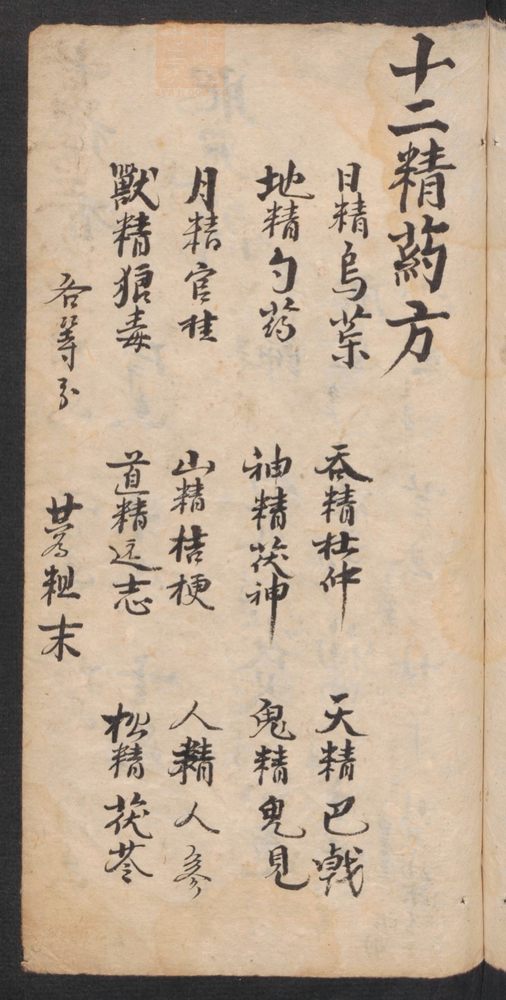 十二精葯方
日精烏藥 吞精杜仲 天精巴戟
地精勺葯 神精茯神 鬼精鬼見
月精官桂 山精桔梗 人精人参
獸精狼毒 道精远志 松精茯苓
各等分 共為粗末